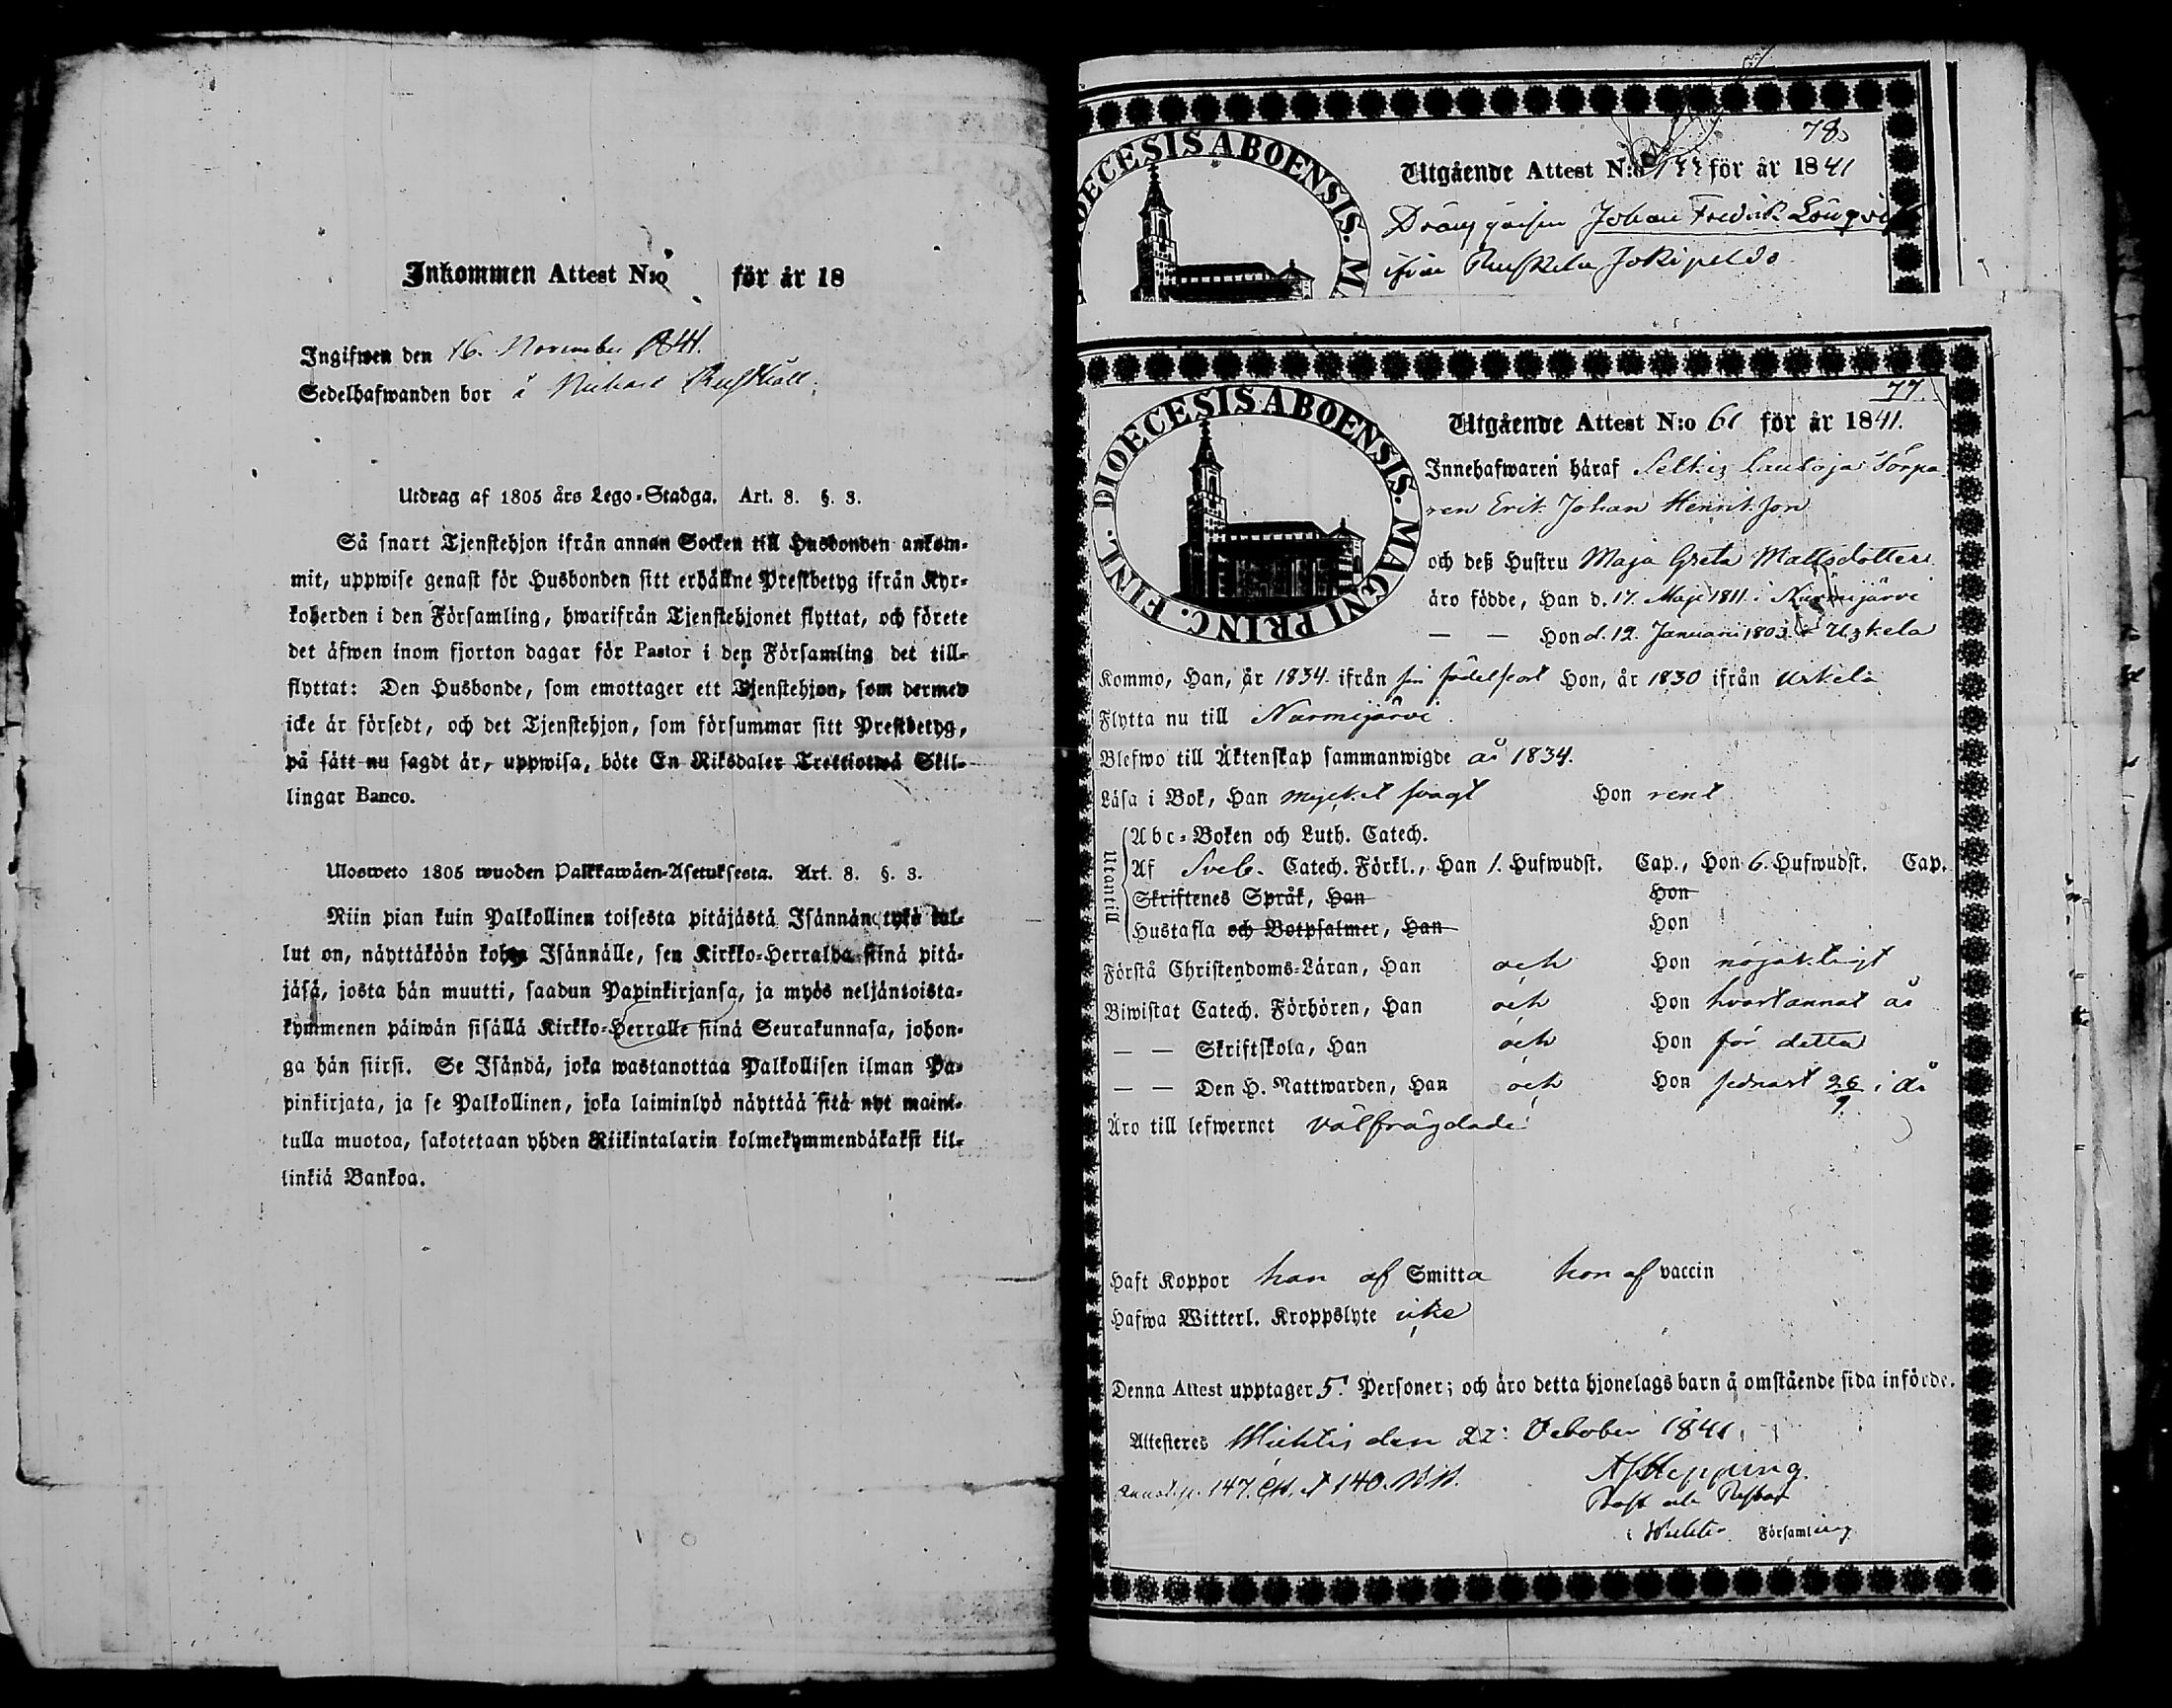 Inkommen Attest N:o för år 18
Ingifwen den 16. November 1841.
Sedelhafwanden bor å
Utdrag af 1805 års Lego-Stadga. Art. 8. §. 3.
Så snart Tjenstehjon ifrån annan Socken till Husbonden ankom-
mit, uppwise genast för Husbonden sitt erhållne Prestbetyg ifrån Kyr-
koherden i den Församling, hwarifrån Tjenstehjonet flyttat, och förete
det äfwen inom fjorton dagar för Pastor i den Församling det till-
flyttat: Den Husbonde, som emottager ett Tjenstehjon, som dermed
icke är försedt, och det Tjenstehjon, som försummar sitt Prestbetyg,
på sätt nu sagdt är, uppwisa, böte En Riksdaler Trettiotwå Skil-
lingar Banco.
Ulosweto 1805 wuoden Palkkawäen-Asetuksesta. Art. 8. §. 3.
Niin pian kuin Palkollinen toisesta pitäjästä Isännän tykö tul-
lut on, näyttäköön kohta Isännälle, sen Kirkko-Herralda siinä pitä-
jäsä, josta hän muutti, saadun Papinkirjansa, ja myös neljäntoista-
kymmenen päiwän sisällä Kirkko-Herralle siinä Seurakunnasa, johon-
ga hän siirsi. Se Isändä, joka wastanottaa Palkollisen ilman Pa-
pinkirjata, ja se Palkollinen, joka laiminlyö näyttää sitä nyt maini-
tulla muotoa, sakotetaan yhden Riikintalarin kolmekymmendäkaksi kil-
linkiä Bankoa.
78.
DIOECESIS ABOENSIS. MA
Utgående Attest N:o för år 1841
Johan Fredrik Lönqvist
Jokipeldo
77.
DIOECESIS ABOENSIS. MAGNI PRINC. FINL.
Utgående Attest N:o 61 för år 1841.
Innehafwaren häraf Torpa-
ren Erik Johan Henriksson
och deß Hustru Maja Greta Mattsdotter
äro födde, Han d. 17. Maji 1811. i Nurmijärvi
— — Hon d. 12. Januari 1803. i Uskela
Kommo, Han, år 1834. ifrån sin födelseort Hon, år 1830 ifrån Uskela
Flytta nu till Nurmijärvi.
Blefwo till Äktenskap sammanwigde år 1834.
Läsa i Bok, Han mycket svagt Hon rent
Utantill
Abc-Boken och Luth. Catech.
Af Sveb. Catech. Förkl., Han 1. Hufwudst. Cap., Hon 6. Hufwudst. Cap.
Skriftenes Språk, Han Hon
Hustafla och Botpsalmer, Han Hon
Förstå Christendoms-Läran, Han och Hon nöjaktigt
Biwistat Catech. Förhören, Han och Hon hvartannat år
— — Skriftskola, Han och Hon för detta
— — Den H. Nattwarden, Han och Hon sednast 26/9 i år
Äro till lefwernet välfrägdade
Haft Koppor han af Smitta hon af vaccin
Hafwa Witterl. Kroppslyte icke
Denna Attest upptager 5. Personer; och äro detta hjonelags barn å omstående sida införde.
Attesteres Wichtis den 22: October 1841.
147. 140.
A. J. Hepping.
Prost och Pastor
i Wichtis Församling